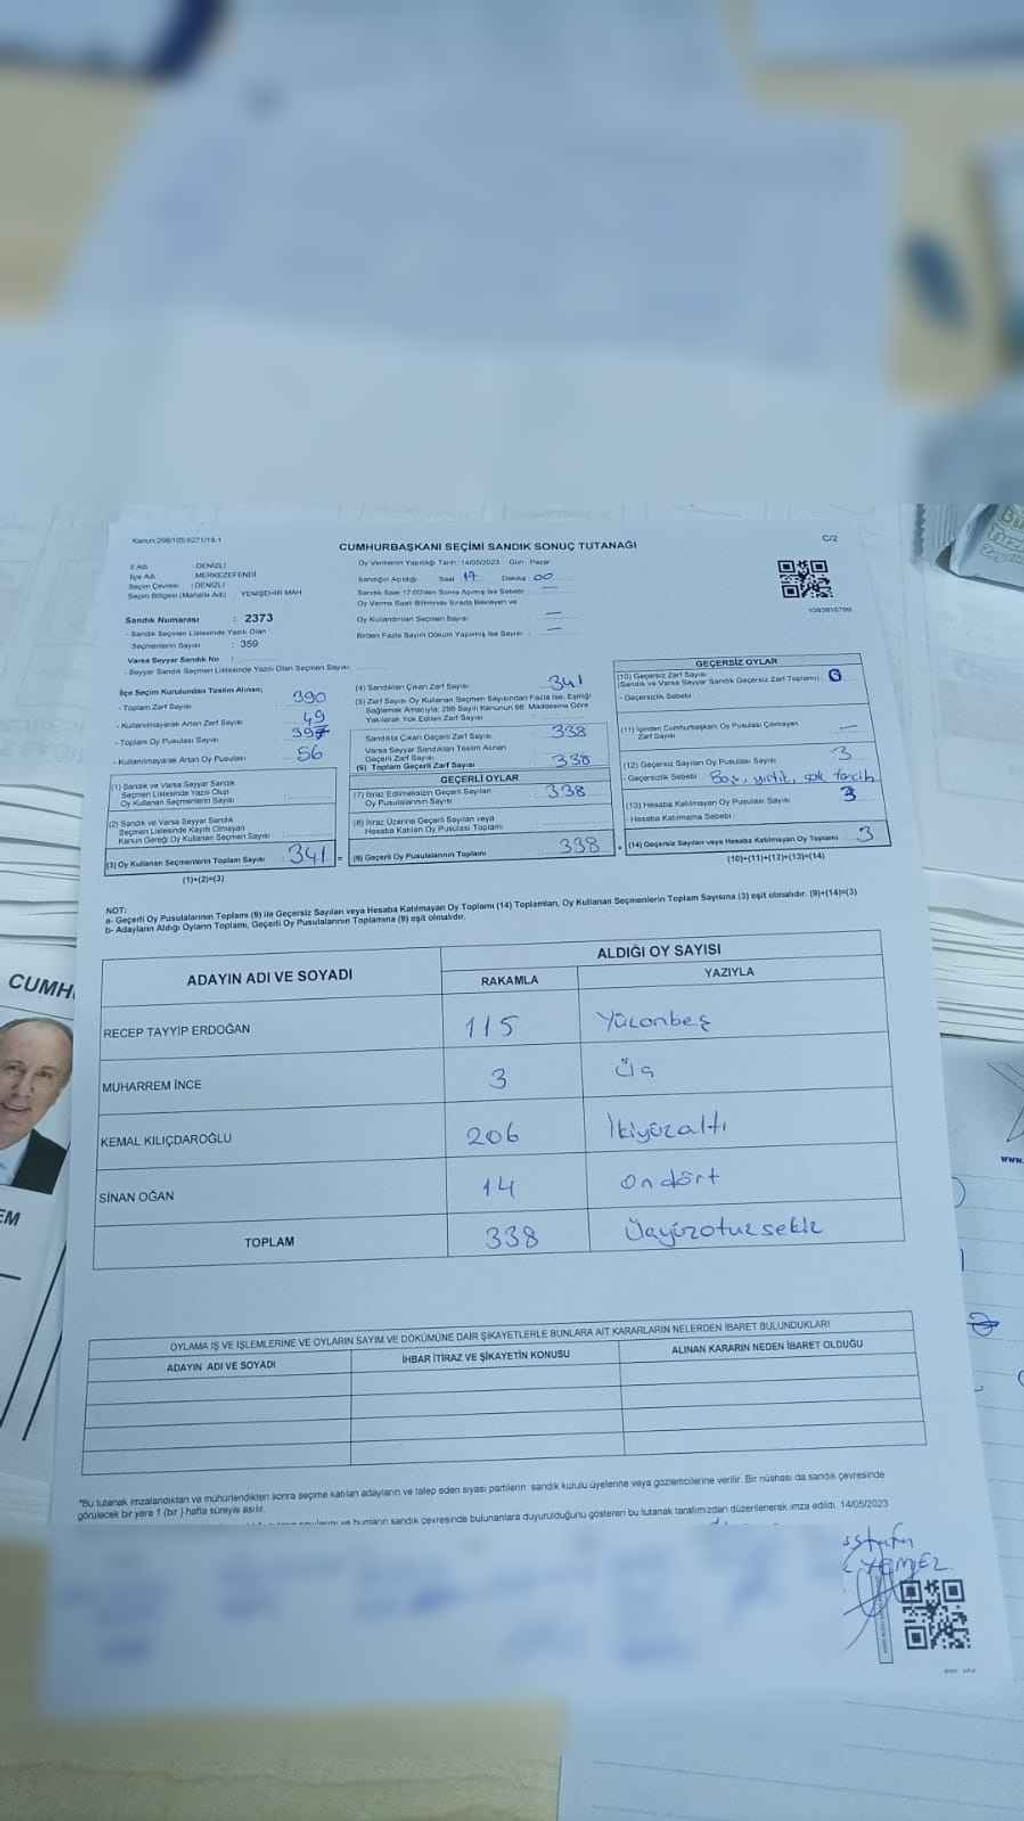 Kanun:298/105;6271/19-1
CUMHURBAŞKANI SEÇİMİ SANDIK SONUÇ TUTANAĞI
C/2
İl Adı : DENİZLİ
İlçe Adı : MERKEZEFENDİ
Seçim Çevresi : DENİZLİ
Seçim Bölgesi (Mahalle Adı) : YENİŞEHİR MAH
Oy Vermenin Yapıldığı Tarih: 14/05/2023 Gün: Pazar
Sandığın Açıldığı Saat 17 Dakika : 00
Sandık Saat 17:00'den Sonra Açılmış İse Sebebi
Oy Verme Saati Bitiminde Sırada Bekleyen ve
Oy Kullandırılan Seçmen Sayısı —
Birden Fazla Sayım Döküm Yapılmış İse Sayısı —
Sandık Numarası : 2373
- Sandık Seçmen Listesinde Yazılı Olan
Seçmenlerin Sayısı : 359
Varsa Seyyar Sandık No :
- Seyyar Sandık Seçmen Listesinde Yazılı Olan Seçmen Sayısı
İlçe Seçim Kurulundan Teslim Alınan;
- Toplam Zarf Sayısı 390
- Kullanılmayarak Artan Zarf Sayısı 49
- Toplam Oy Pusulası Sayısı 397
- Kullanılmayarak Artan Oy Pusulası 56
(1) Sandık ve Varsa Seyyar Sandık
Seçmen Listesinde Yazılı Olup
Oy Kullanan Seçmenlerin Sayısı
(2) Sandık ve Varsa Seyyar Sandık
Seçmen Listesinde Kayıtlı Olmayan
Kanun Gereği Oy Kullanan Seçmen Sayısı
(3) Oy Kullanan Seçmenlerin Toplam Sayısı : 341
(1)+(2)=(3)
(4) Sandıktan Çıkan Zarf Sayısı 341
(5) Zarf Sayısı Oy Kullanan Seçmen Sayısından Fazla İse, Eşitliği
Sağlamak Amacıyla; 298 Sayılı Kanunun 98. Maddesine Göre
Yakılarak Yok Edilen Zarf Sayısı
Sandıkta Çıkan Geçerli Zarf Sayısı 338
Varsa Seyyar Sandıktan Teslim Alınan
Geçerli Zarf Sayısı
(6) Toplam Geçerli Zarf Sayısı 338
GEÇERLİ OYLAR
(7) İtiraz Edilmeksizin Geçerli Sayılan
Oy Pusulalarının Sayısı 338
(8) İtiraz Üzerine Geçerli Sayılan veya
Hesaba Katılan Oy Pusulası Toplamı
(9) Geçerli Oy Pusulalarının Toplamı 338
GEÇERSİZ OYLAR
(10) Geçersiz Zarf Sayısı
(Sandık ve Varsa Seyyar Sandık Geçersiz Zarf Toplamı)
- Geçersizlik Sebebi
(11) İçinden Cumhurbaşkanı Oy Pusulası Çıkmayan
Zarf Sayısı —
(12) Geçersiz Sayılan Oy Pusulası Sayısı 3
- Geçersizlik Sebebi Boş, yırtık, çok tercih
(13) Hesaba Katılmayan Oy Pusulası Sayısı 3
- Hesaba Katılmama Sebebi
(14) Geçersiz Sayılan veya Hesaba Katılmayan Oy Toplamı 3
(10)+(11)+(12)+(13)=(14)
NOT:
a- Geçerli Oy Pusulalarının Toplamı (9) ile Geçersiz Sayılan veya Hesaba Katılmayan Oy Toplamı (14) Toplamları, Oy Kullanan Seçmenlerin Toplam Sayısına (3) eşit olmalıdır. (9)+(14)=(3)
b- Adayların Aldığı Oyların Toplamı, Geçerli Oy Pusulalarının Toplamına (9) eşit olmalıdır.
ADAYIN ADI VE SOYADI
ALDIĞI OY SAYISI
RAKAMLA YAZIYLA
RECEP TAYYİP ERDOĞAN 115 Yüzonbeş
MUHARREM İNCE 3 Üç
KEMAL KILIÇDAROĞLU 206 İkiyüzaltı
SİNAN OĞAN 14 Ondört
TOPLAM 338 Üçyüzotuzsekiz
OYLAMA İŞ VE İŞLEMLERİNE VE OYLARIN SAYIM VE DÖKÜMÜNE DAİR ŞİKAYETLERLE BUNLARA AİT KARARLARIN NELERDEN İBARET BULUNDUKLARI
ADAYIN ADI VE SOYADI İHBAR İTİRAZ VE ŞİKAYETİN KONUSU ALINAN KARARIN NEDEN İBARET OLDUĞU
"Bu tutanak imzalandıktan ve mühürlendikten sonra seçime katılan adayların ve talep eden siyasi partilerin sandık kurulu üyelerine veya gözlemcilerine verilir. Bir nüshası da sandık çevresinde
görülecek bir yere 1 (bir) hafta süreyle asılır.
sandık çevresinde bulunanlara duyurulduğunu gösteren bu tutanak tarafımızdan düzenlenerek imza edildi. 14/05/2023
CUMH
EM
www.